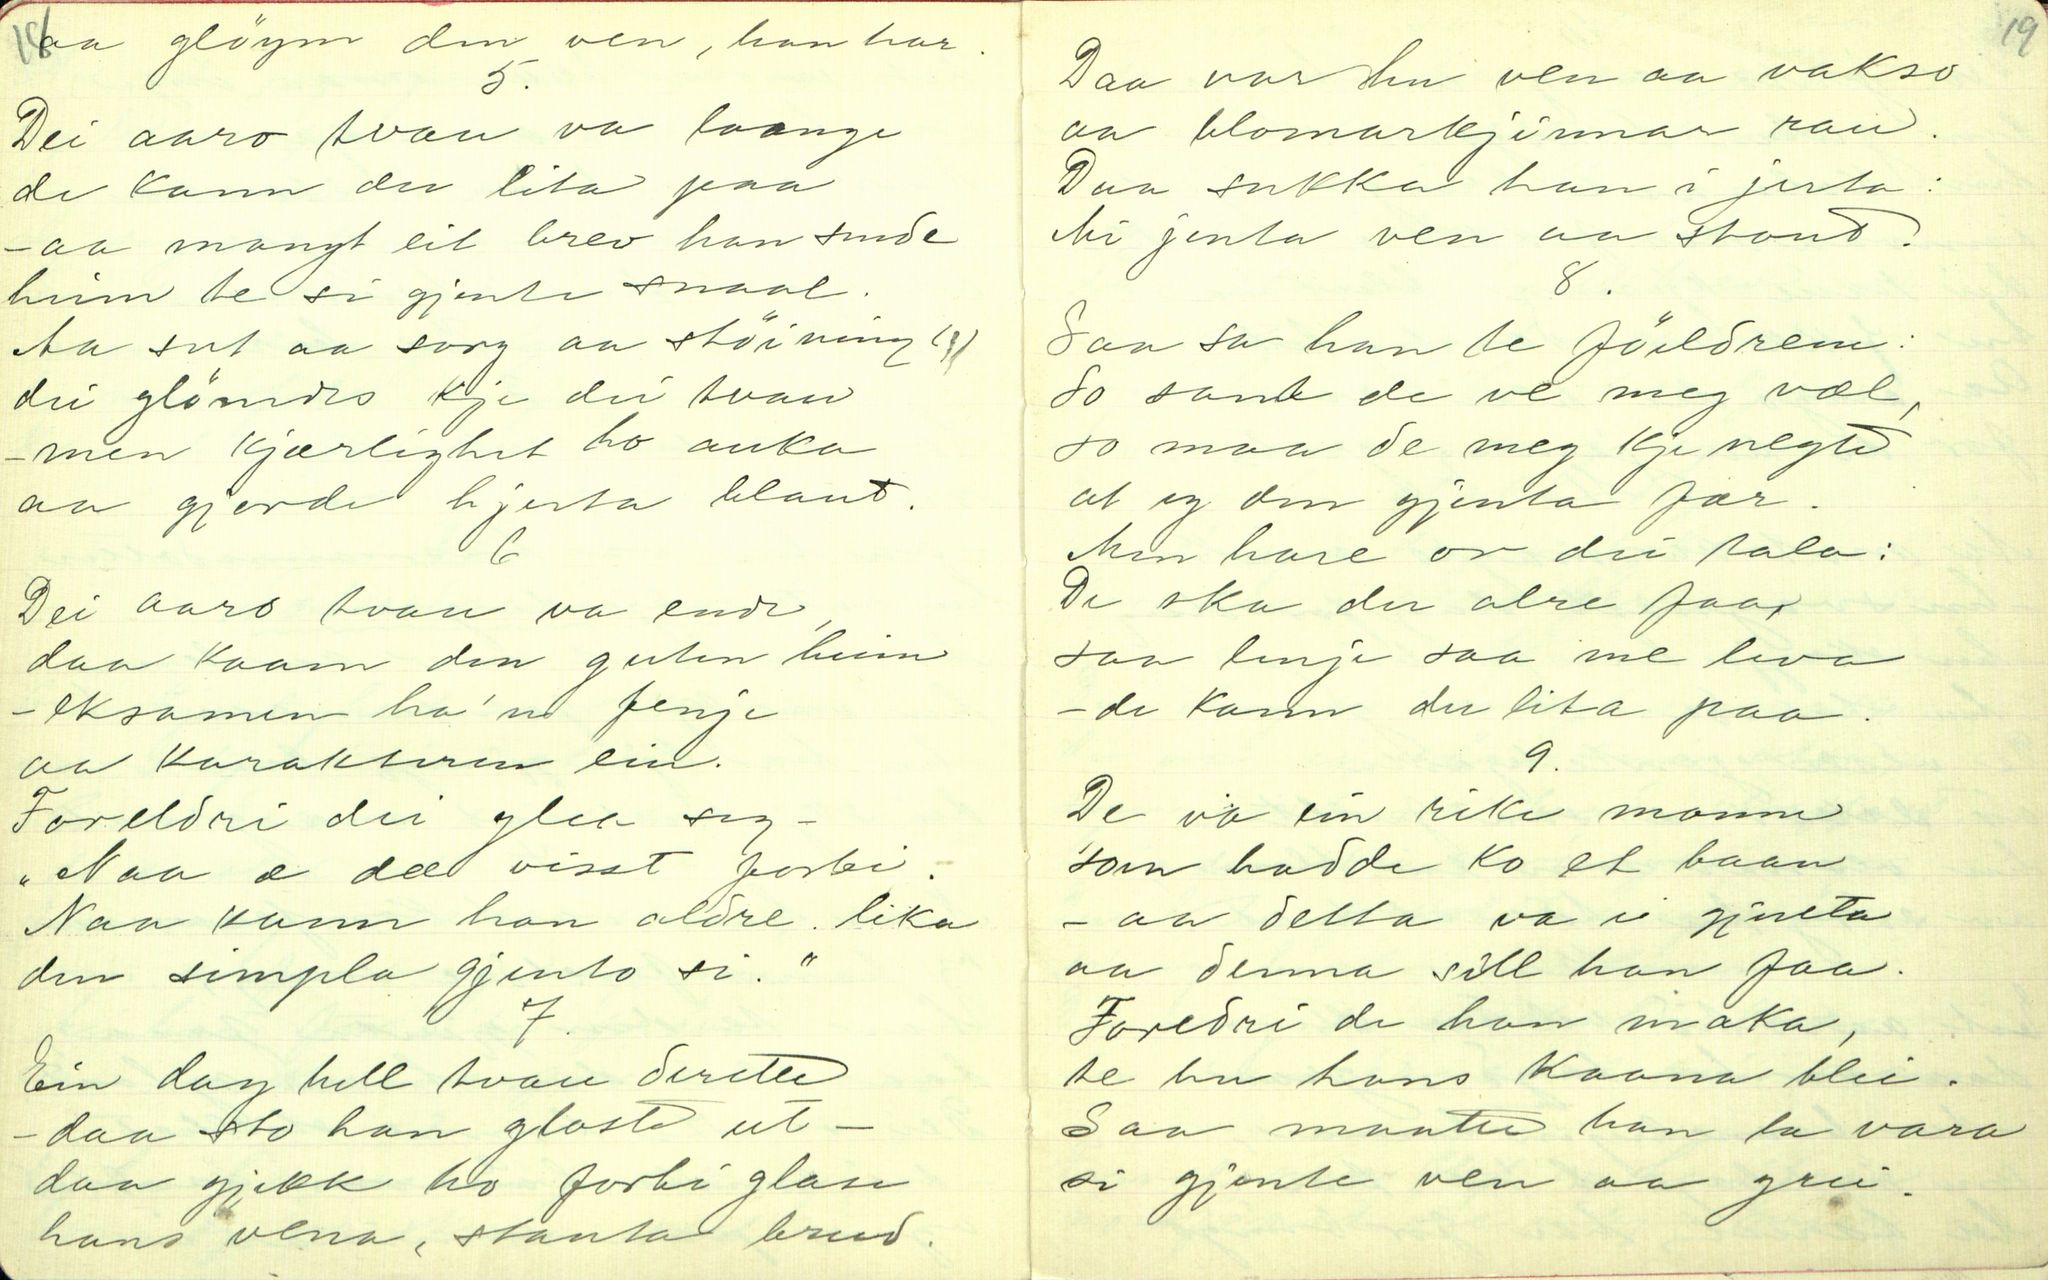 18
aa glöym den ven, han har.
5.
Dei aaro tvau va laange
de kann du lita paa
- aa mangt eit brev han sende
heim te si gjente snaal.
Aa sut aa sorg aa stöining
dei glömdes kje dei tvau
- men kjærlighet ho auka
aa gjorde hjerta blaut.
6
Dei aaro tvau va endt,
daa kaam den guten heim
- eksamen ha'n fenje
aa karakteren ein.
Foreldri dei glea seg -
"Naa æ dæ visst forbi.
Naa kann han aldre lika
den simpla gjento si."
7.
Ein dag hell tvau derette
- daa sto han gloste ut -
daa gjekk ho forbi glase
hans vena, stauta brud.
19
Daa var hu ven aa vakso
aa blomarkjinnar rau.
Daa sukka han i jerta:
Mi jenta ven aa staut.
8.
Saa sa han te föreldrem:
So sant de ve meg væl,
so maa de meg kje negte
at eg den gjenta fær.
Men hare or dei tala:
De ska du alre faa,
saa lenje saa me leva
- de kann du lita paa.
9.
De va ein rike manne
som hadde ko et baan
- aa detta va ei gjenta
aa denna sill han faa.
Foredri de han maka,
te hu hans kaana blei.
Saa maatte han la vara
si gjente ven aa grei.